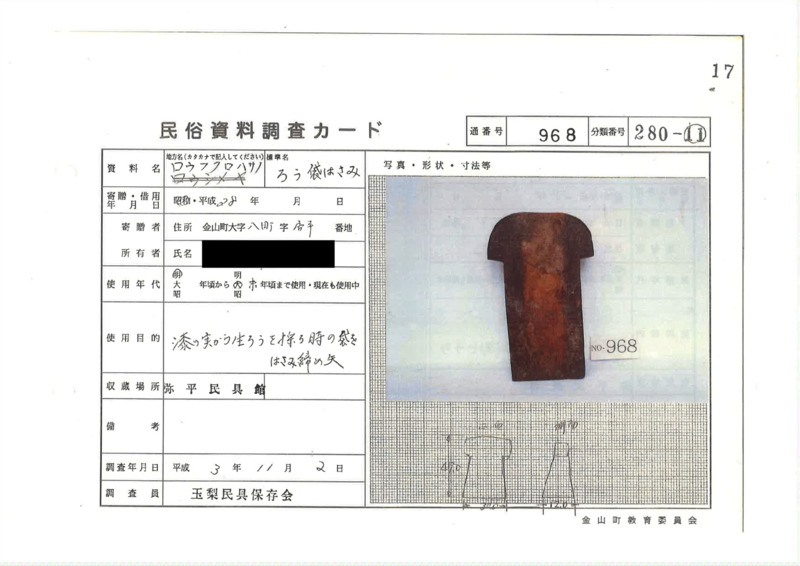 17
民俗資料調査カード
通番号 968 分類番号 280-11
資料名 地方名(カタカナで記入してください) ロウフクロハサ 標準名 ろう袋はさみ
寄贈・借用年月日 昭和・平成 28 年 月 日
寄贈者 住所 金山町大字 八町 字 居平 番地
所有者 氏名
使用年代 明大昭 年頃から 明大昭 末 年頃まで使用・現在も使用中
使用目的 漆の実から生ろうを採る時の袋を
はさみ締め矢
収蔵場所 弥平民具館
備考
調査年月日 平成 3 年 11 月 2 日
調査員 玉梨民具保存会
写真・形状・寸法等
NO-968
正面 側面
12.0
金山町教育委員会